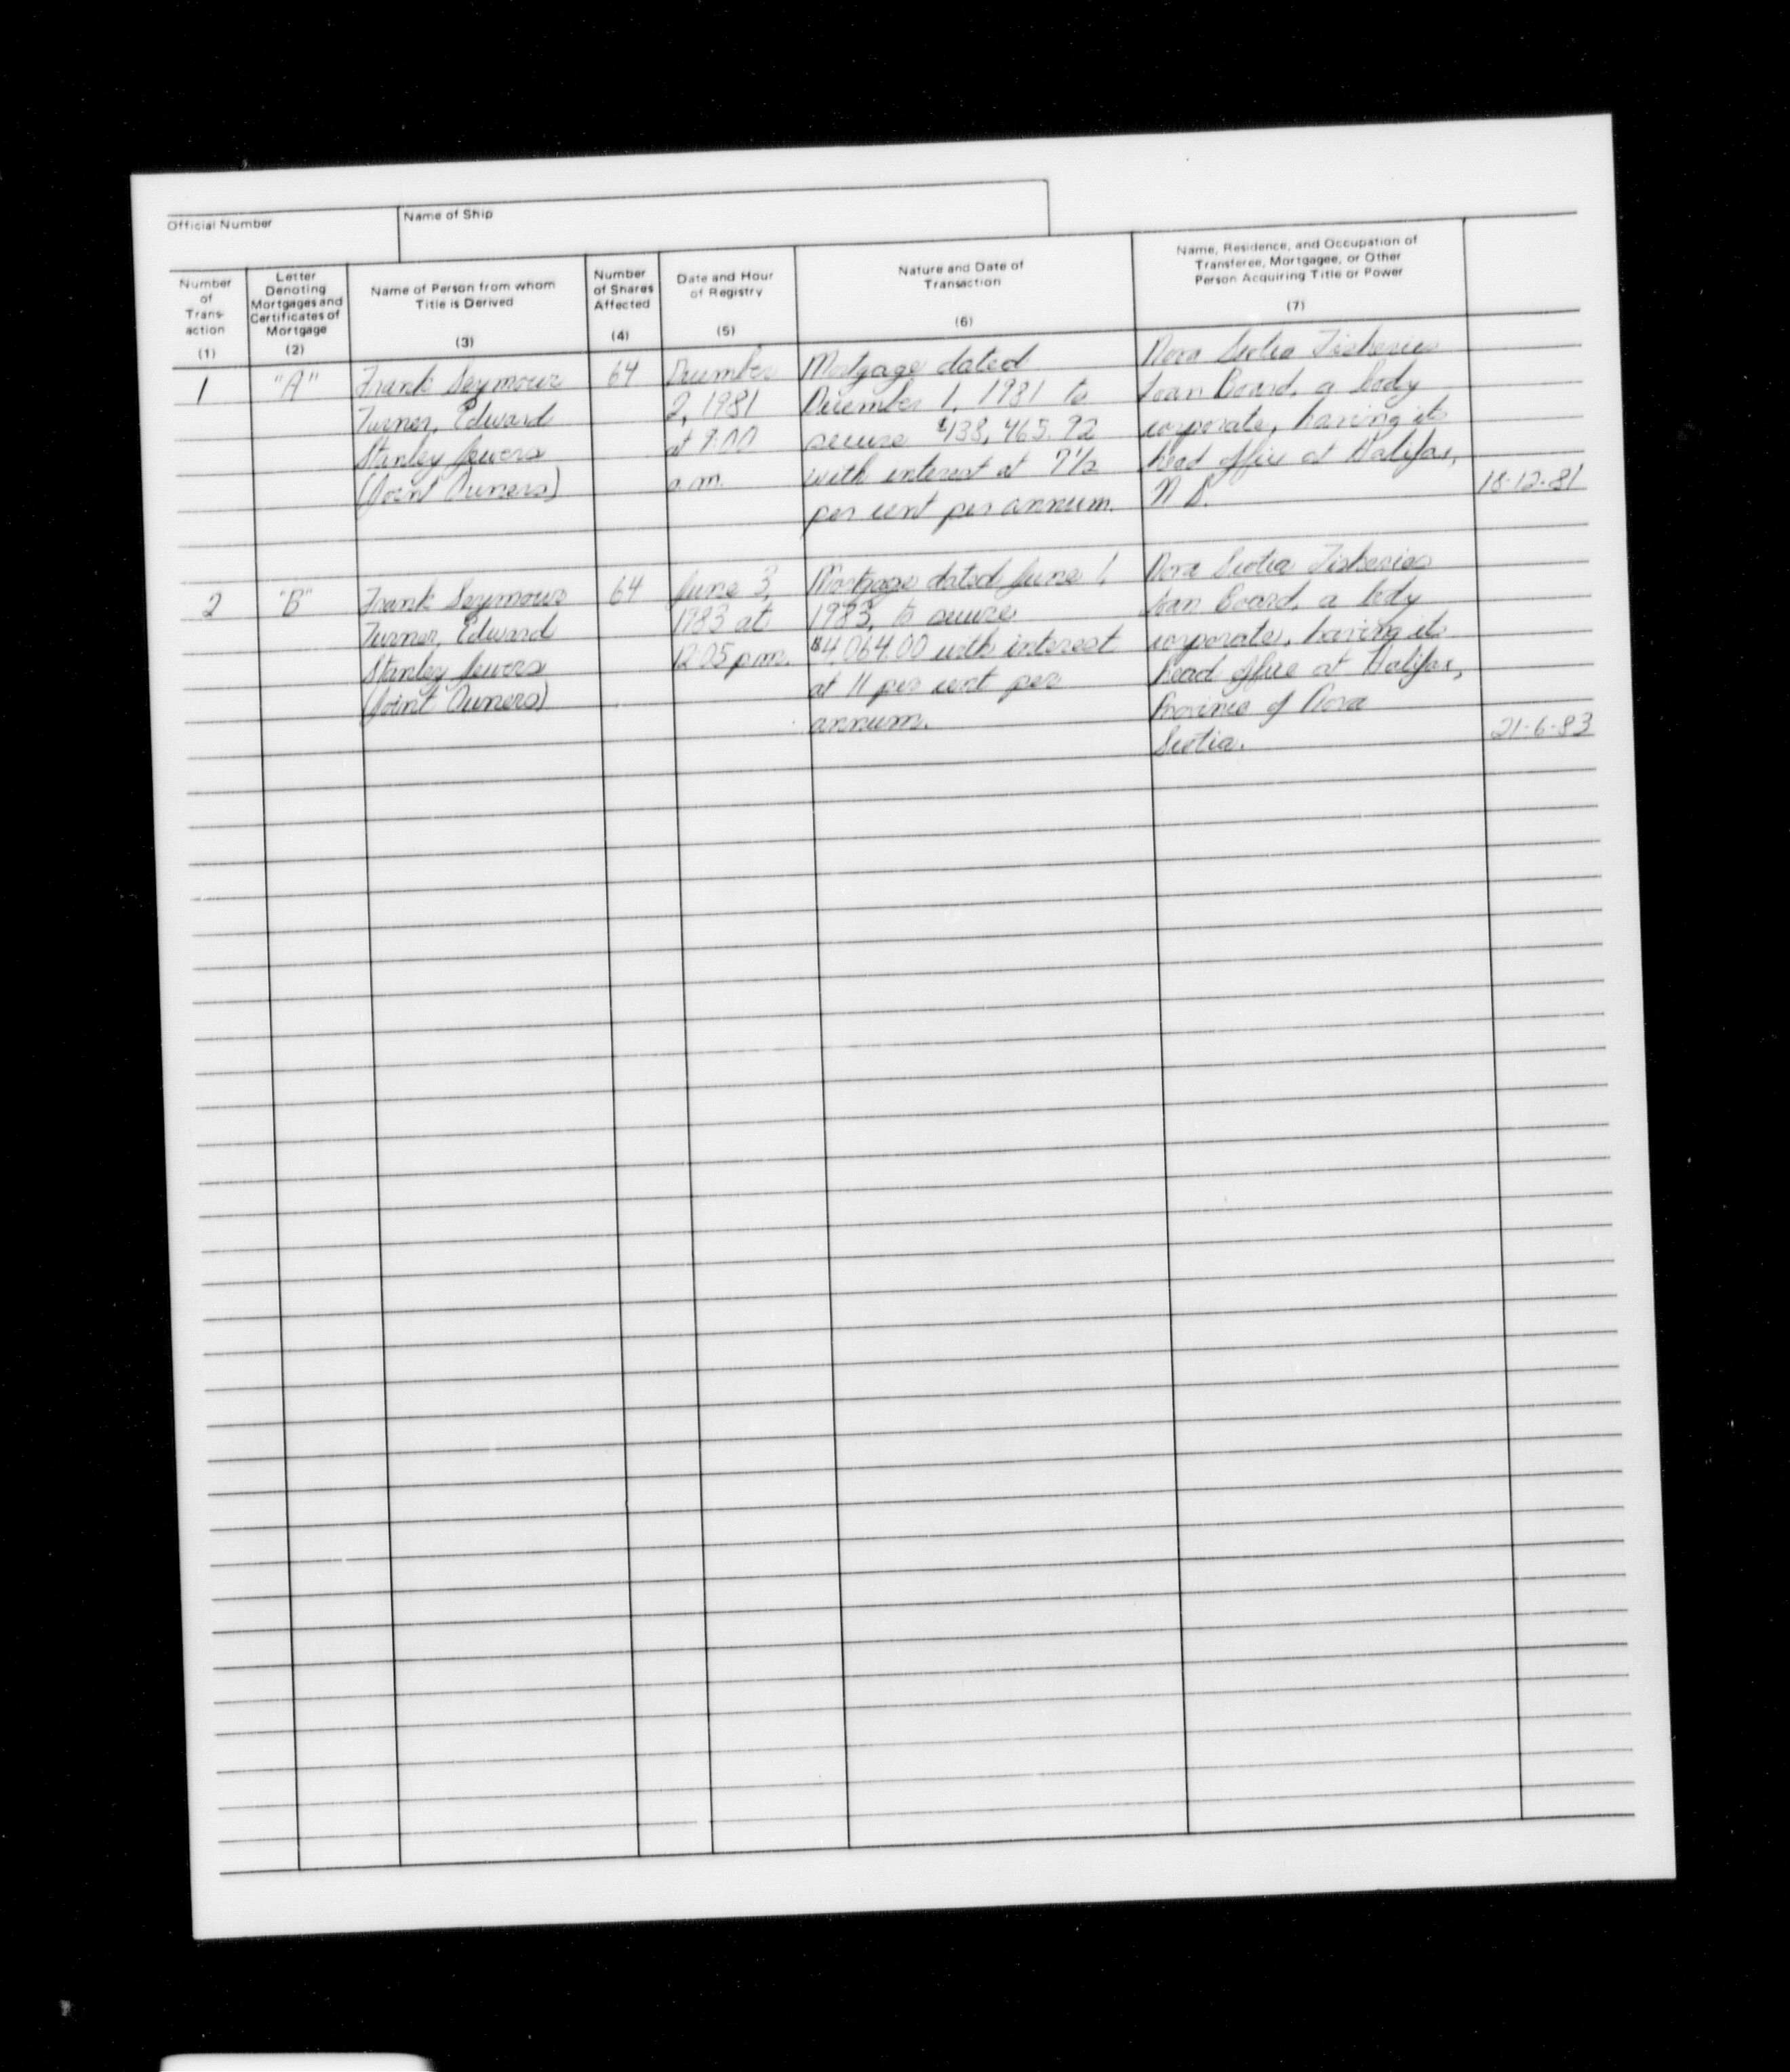 Official Number
Name of Ship
Number
of
Trans-
action
(1)
Letter
Denoting
Mortgages and
Certificates of
Mortgage
(2)
Name of Person from whom
Title is Derived
(3)
Number
of Shares
Affected
(4)
Date and Hour
of Registry
(5)
Nature and Date of
Transaction
(6)
Name, Residence, and Occupation of
Transferee, Mortgagee, or Other
Person Acquiring Title or Power
(7)
1
"A"
Frank Seymour
Turner, Edward
Stanley Jewers
(Joint Owners)
64
December
2, 1981
at 9:00
a.m.
Mortgage dated
December 1, 1981 to
secure $138,465.92
with interest at 7½
per cent per annum.
Nova Scotia Fisheries
Loan Board, a body
corporate, having its
head office at Halifax,
N.S.
18-12-81
2
"B"
Frank Seymour
Turner, Edward
Stanley Jewers
(Joint Owners)
64
June 3,
1983 at
12:05 p.m.
Mortgage dated June 1,
1983, to secure
$4,064.00 with interest
at 11 per cent per
annum.
Nova Scotia Fisheries
Loan Board, a body
corporate, having its
head office at Halifax,
Province of Nova
Scotia.
21-6-83